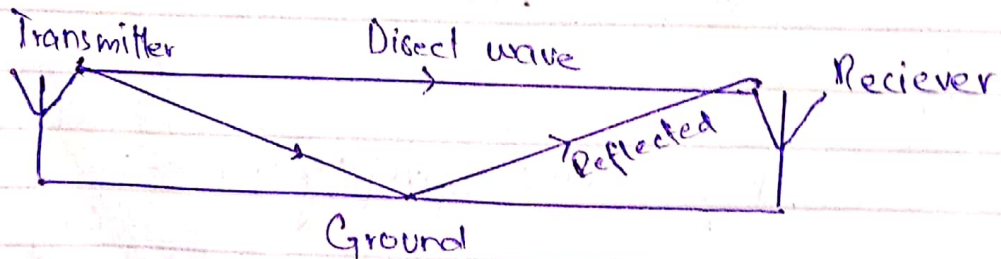 Transmitter
Direct wave
Reciever
Reflected
Ground